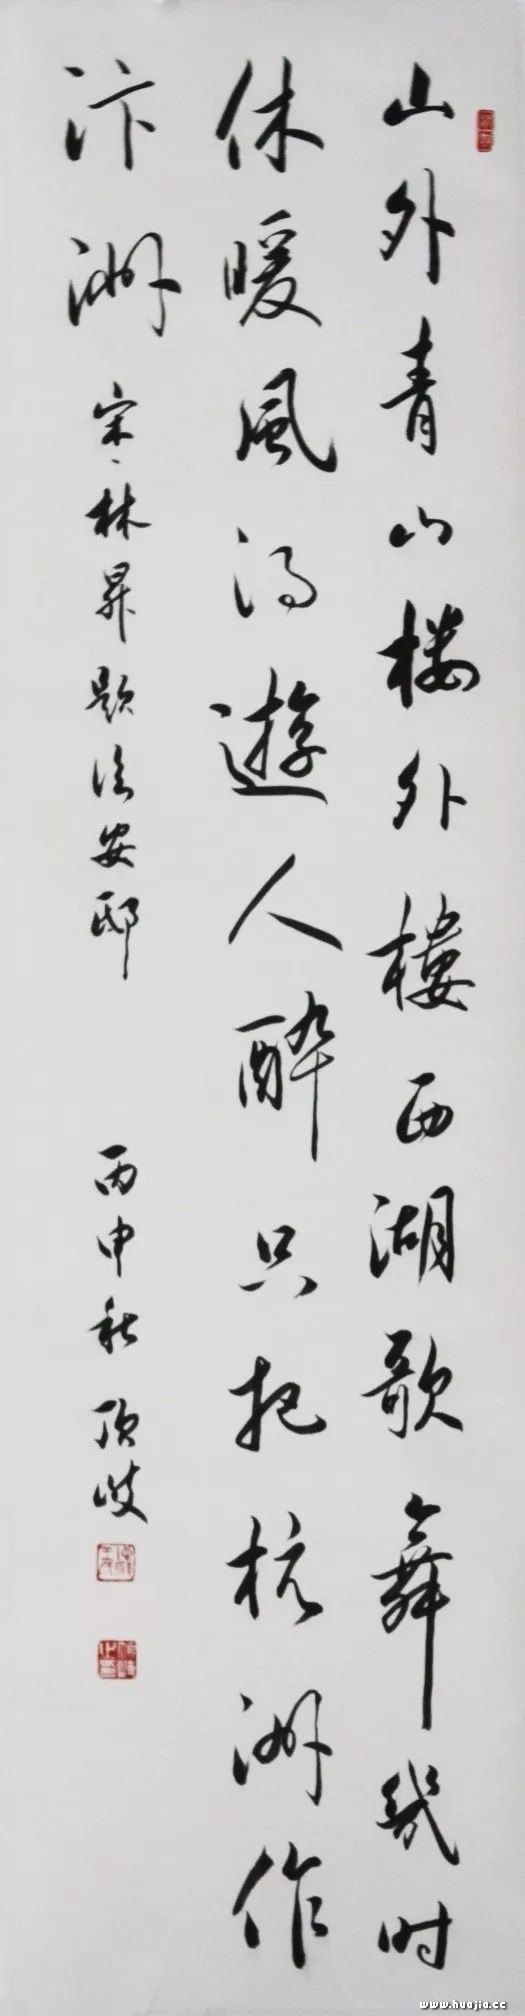 山外青山楼外樓西湖歌舞幾时
休暖風得遊人醉只把杭洲作
汴洲
宋、林昇题临安邸
丙申秋
www.huajia.cc